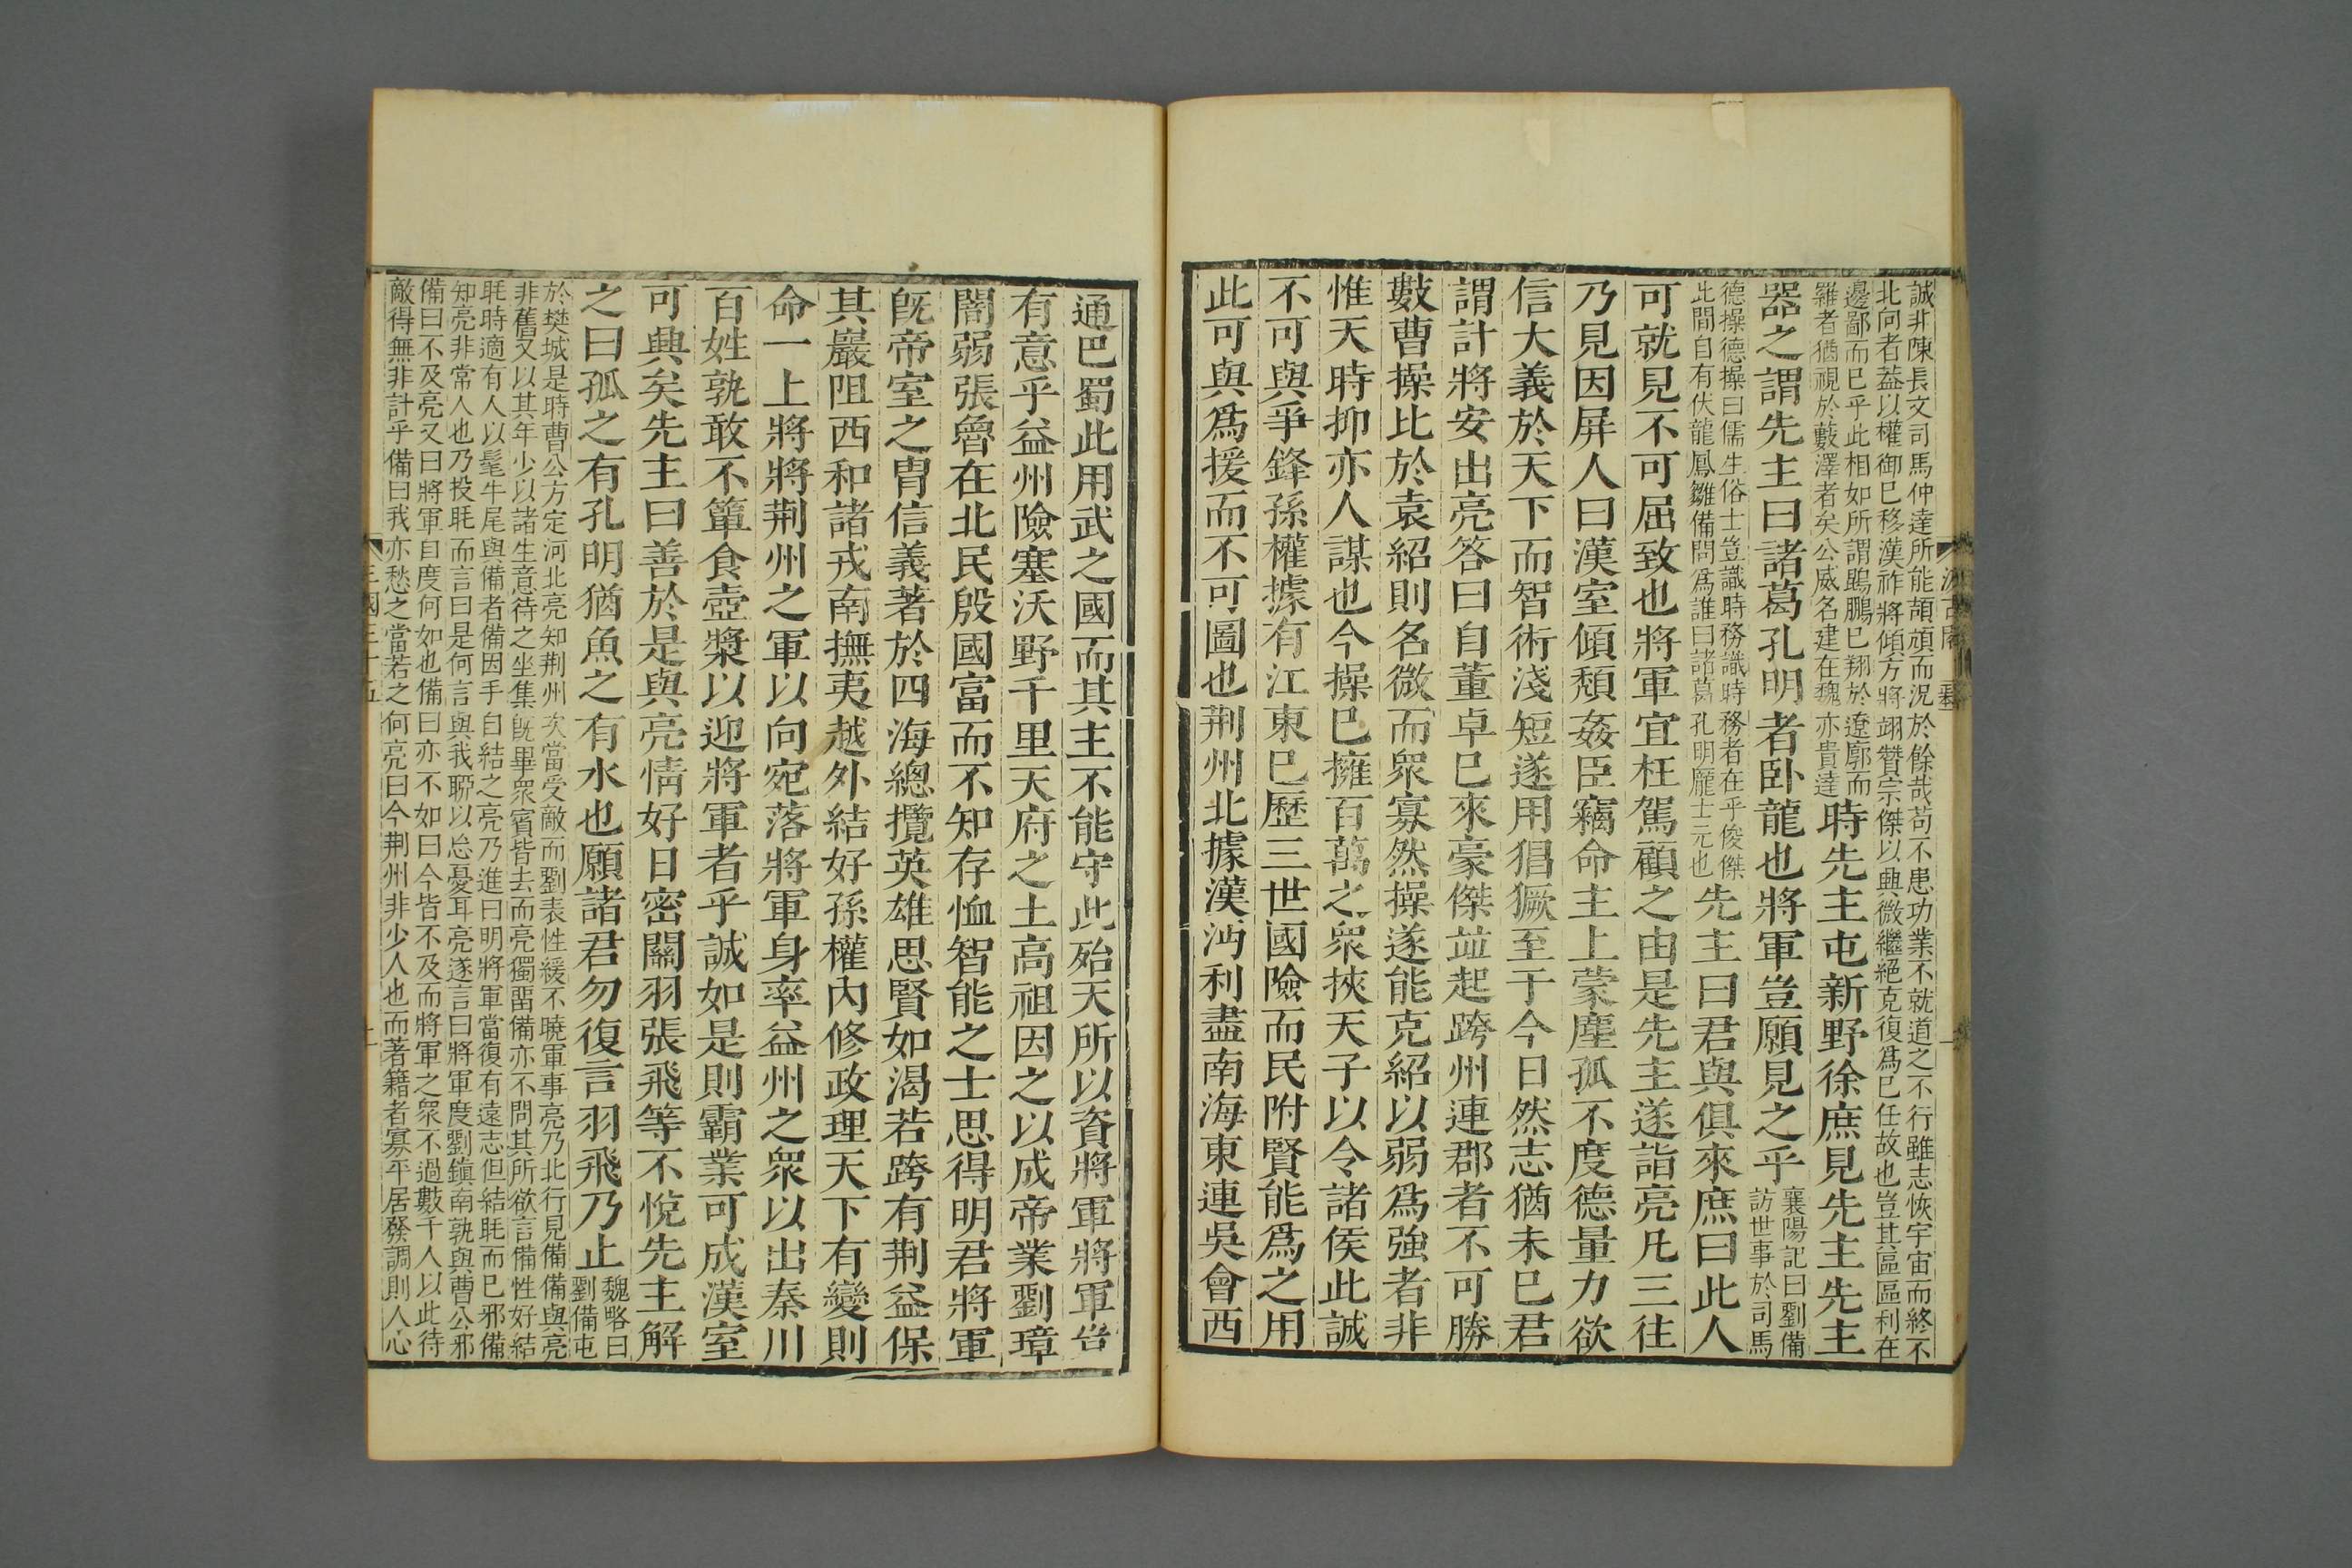 誠非陳長文司馬仲達所能頡頏而況於餘哉苟不患功業不就道之不行雖志恢宇宙而終不
北向者葢以權御已移漢祚將傾方將翊贊宗傑以興微繼絕克復爲已任故也豈其區區利在
邊鄙而已乎此相如所謂鵾鵬已翔於遼廓而
羅者猶視於藪澤者矣公威名建在魏亦貴達
時先主屯新野徐庶見先主先主
器之謂先主曰諸葛孔明者卧龍也將軍豈願見之乎
襄陽記曰劉備
訪世事於司馬
德操德操曰儒生俗士豈識時務識時務者在乎俊傑
此間自有伏龍鳳雛備問爲誰曰諸葛孔明龐士元也
先主曰君與俱來庶曰此人
可就見不可屈致也將軍宜枉駕顧之由是先主遂詣亮凡三往
乃見因屏人曰漢室傾頹姦臣竊命主上蒙塵孤不度德量力欲
信大義於天下而智術淺短遂用猖獗至于今日然志猶未已君
謂計將安出亮答曰自董卓已來豪傑並起跨州連郡者不可勝
數曹操比於袁紹則名微而眾寡然操遂能克紹以弱爲強者非
惟天時抑亦人謀也今操已擁百萬之眾挾天子以令諸侯此誠
不可與爭鋒孫權據有江東已歷三世國險而民附賢能爲之用
此可與爲援而不可圖也荆州北據漢沔利盡南海東連吳會西
通巴蜀此用武之國而其主不能守此殆天所以資將軍將軍豈
有意乎益州險塞沃野千里天府之土高祖因之以成帝業劉璋
闇弱張魯在北民殷國富而不知存恤智能之士思得明君將軍
旣帝室之胄信義著於四海總攬英雄思賢如渴若跨有荆益保
其巖阻西和諸戎南撫夷越外結好孫權內修政理天下有變則
命一上將將荆州之軍以向宛洛將軍身率益州之眾以出秦川
百姓孰敢不簞食壺漿以迎將軍者乎誠如是則霸業可成漢室
可興矣先主曰善於是與亮情好日密關羽張飛等不悅先主解
之曰孤之有孔明猶魚之有水也願諸君勿復言羽飛乃止
魏略曰
劉備屯
於樊城是時曹公方定河北亮知荆州次當受敵而劉表性緩不曉軍事亮乃北行見備備與亮
非舊又以其年少以諸生意待之坐集旣畢眾賓皆去而亮獨留備亦不問其所欲言備性好結
毦時適有人以髦牛尾與備者備因手自結之亮乃進曰明將軍當復有遠志但結毦而已邪備
知亮非常人也乃投毦而言曰是何言與我聊以忘憂耳亮遂言曰將軍度劉鎮南孰與曹公邪
備曰不及亮又曰將軍自度何如也備曰亦不如曰今皆不及而將軍之眾不過數千人以此待
敵得無非計乎備曰我亦愁之當若之何亮曰今荆州非少人也而著籍者寡平居發調則人心